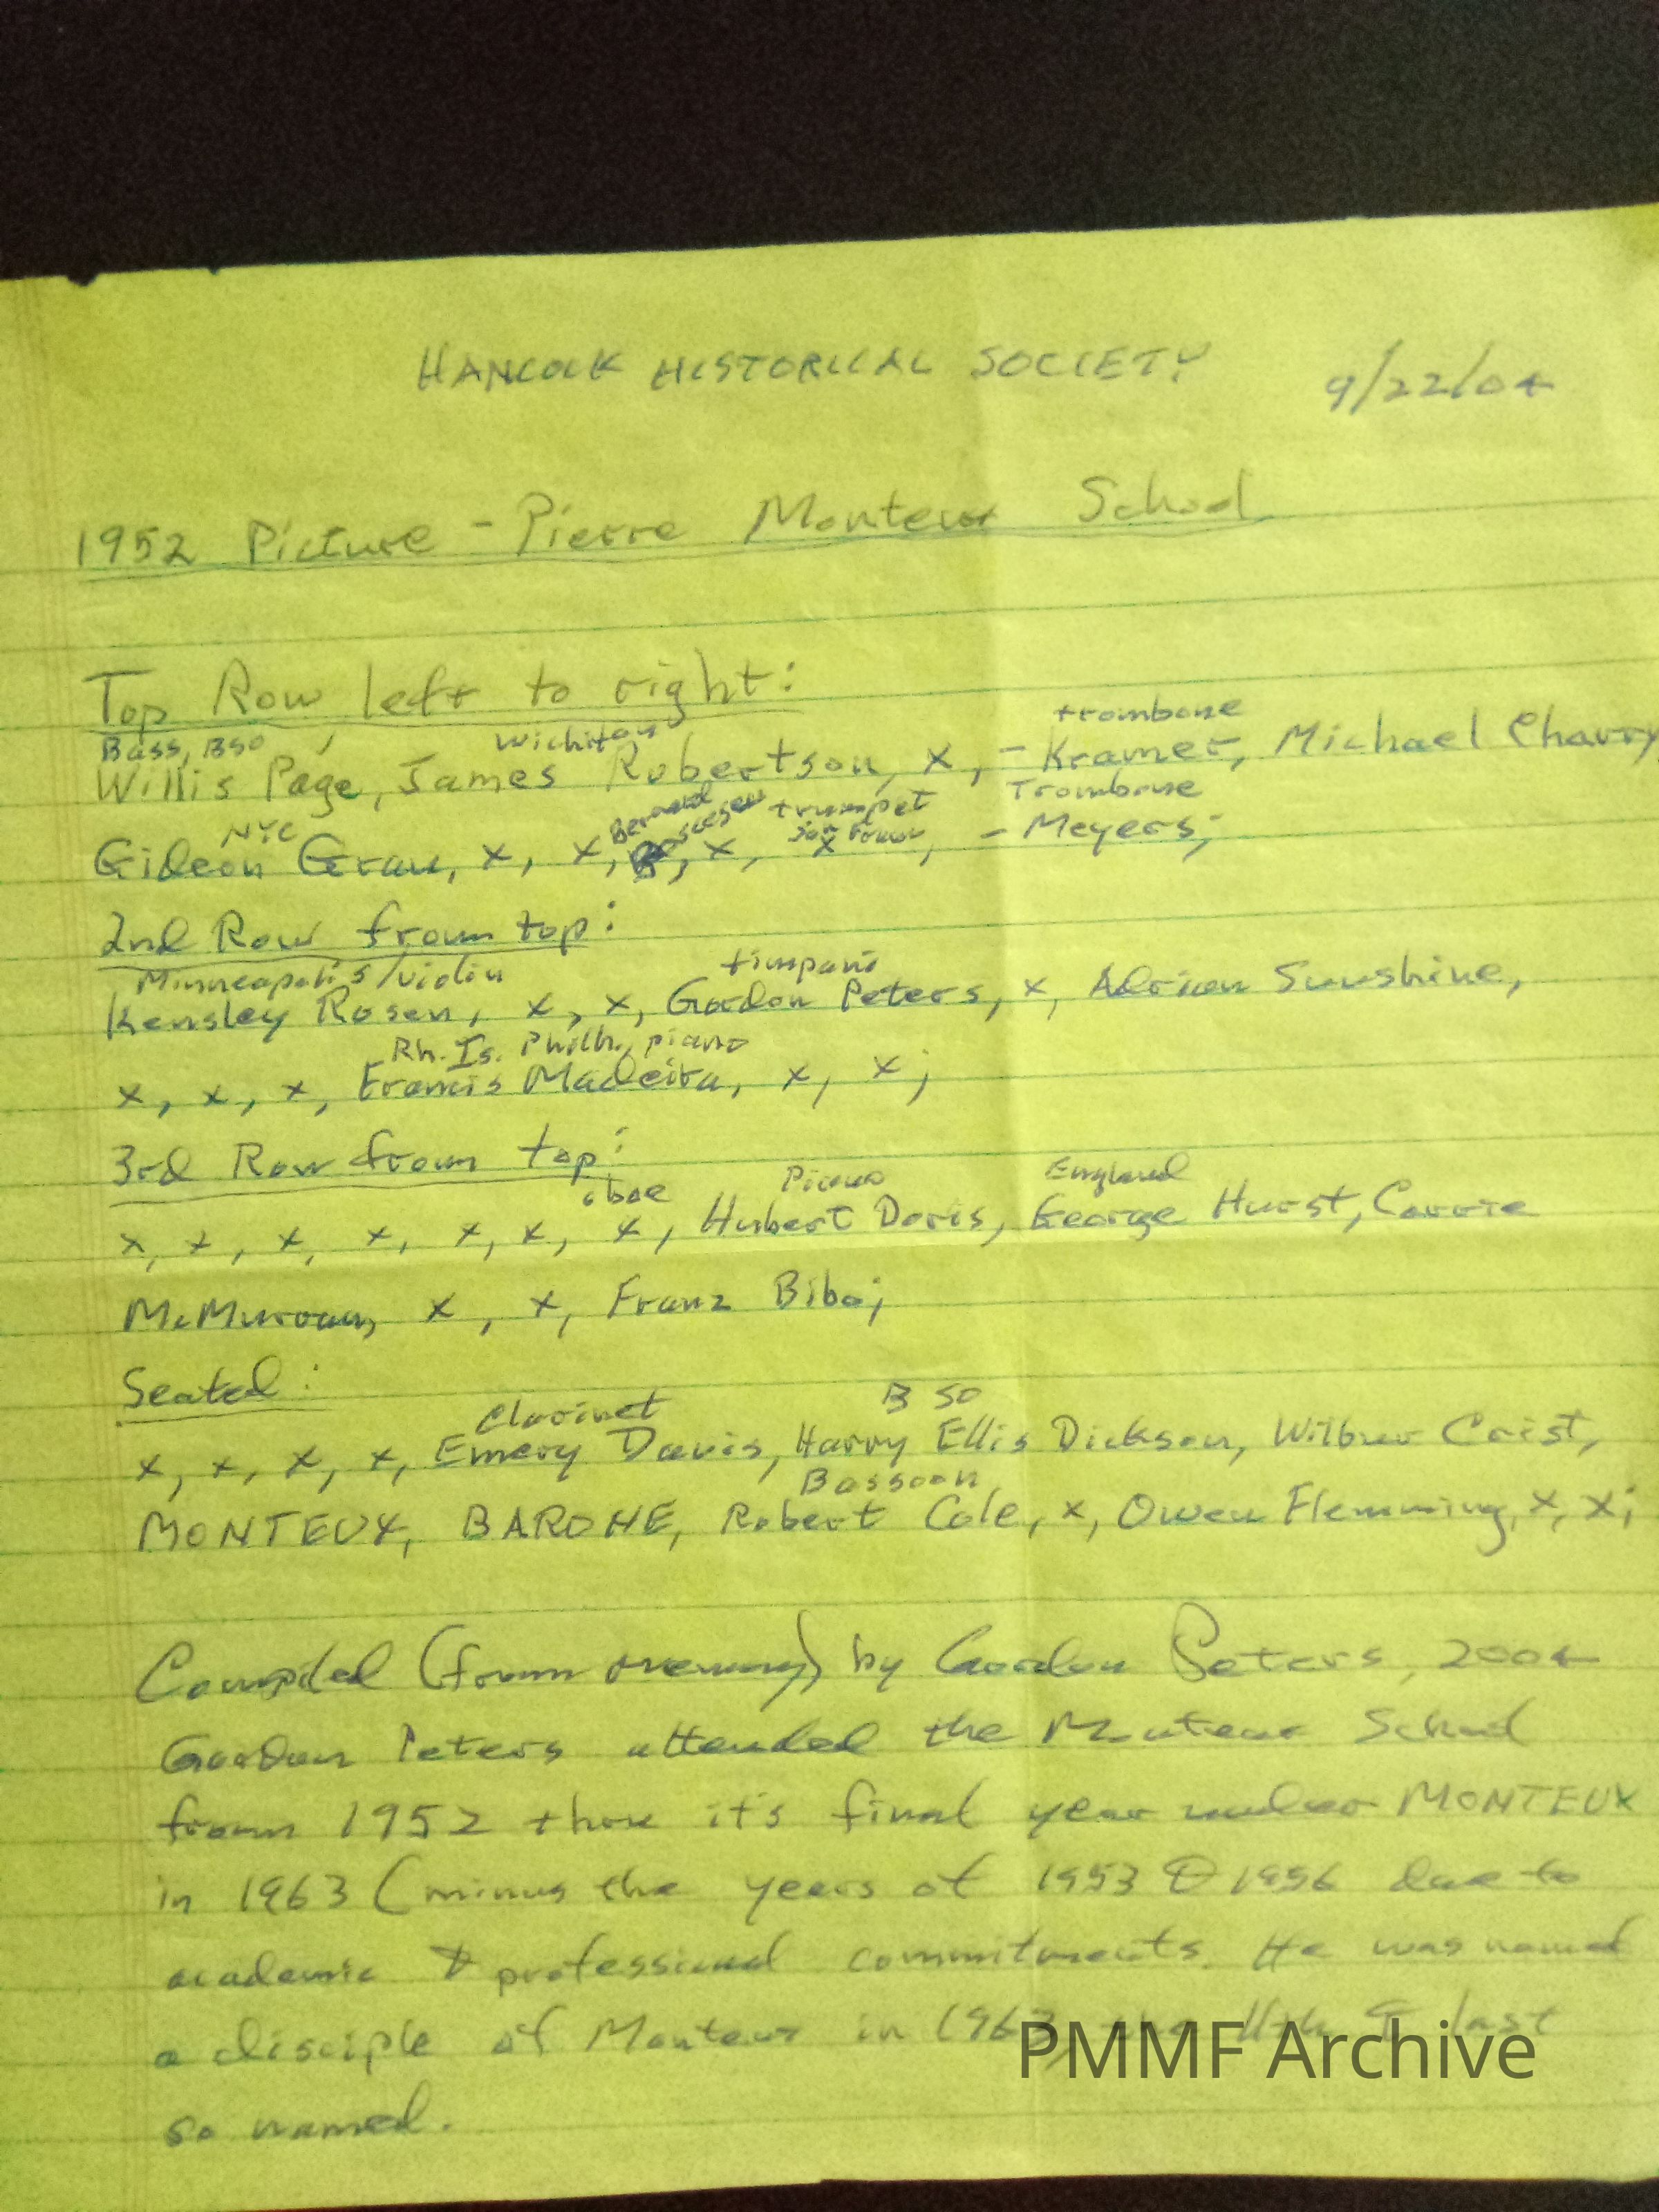 HANCOCK HISTORICAL SOCIETY 9/22/04
1952 Picture - Pierre Monteux School
Top Row left to right:
Bass, BSO Wichita trombone
Willis Page, James Robertson, x, - Kramer, Michael Charry
NYC Bernard trumpet Trombone
Gideon Grau, x, x, x, San Fran x, - Meyers;
2nd Row from top:
Minneapolis/violin timpani
Kensley Rosen, x, x, Gordon Peters, x, Adrian Sunshine,
Rh. Is. Philh., piano
x, x, x, Francis Madeira, x, x;
3rd Row from top:
oboe Piano England
x, x, x, x, x, x, x, Hubert Doris, George Hurst, Carrie
McMurray, x, x, Franz Bibo;
Seated:
Clarinet BSO
x, x, x, x, Emery Davis, Harry Ellis Dickson, Wilbur Crist,
Bassoon
MONTEUX, BARONE, Robert Cole, x, Owen Flemming, x, x;
Compiled (from memory) by Gordon Peters, 2004
Gordon Peters attended the Monteux School
from 1952 thru it's final year under MONTEUX
in 1963 (minus the years of 1953 & 1956 due to
academic & professional commitments. He was named
a disciple of Monteux in 1963, the 11th & last
so named.
PMMF Archive